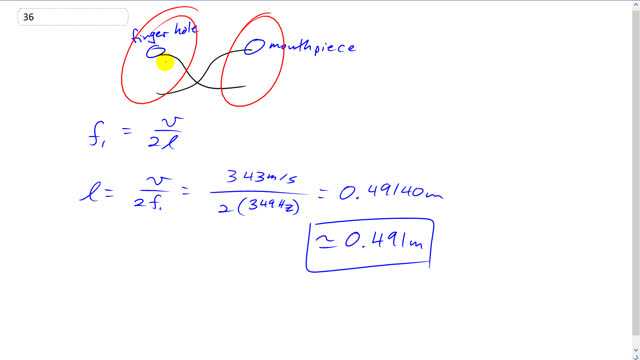 36
finger hole
mouthpiece
f₁ = v / 2l
l = v / 2f₁ = 343 m/s / 2(349 Hz) = 0.49140 m
≃ 0.491 m